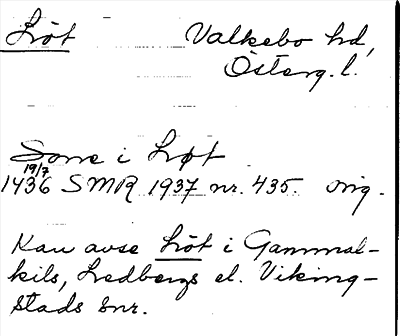 Löt Valkebo hd,
Österg. l.
Sone i Løt
19/7
1436 SMR 1937 nr. 435. orig.
Kan avse Löt i Gammal-
kils, Ledbergs el. Viking-
stads snr.